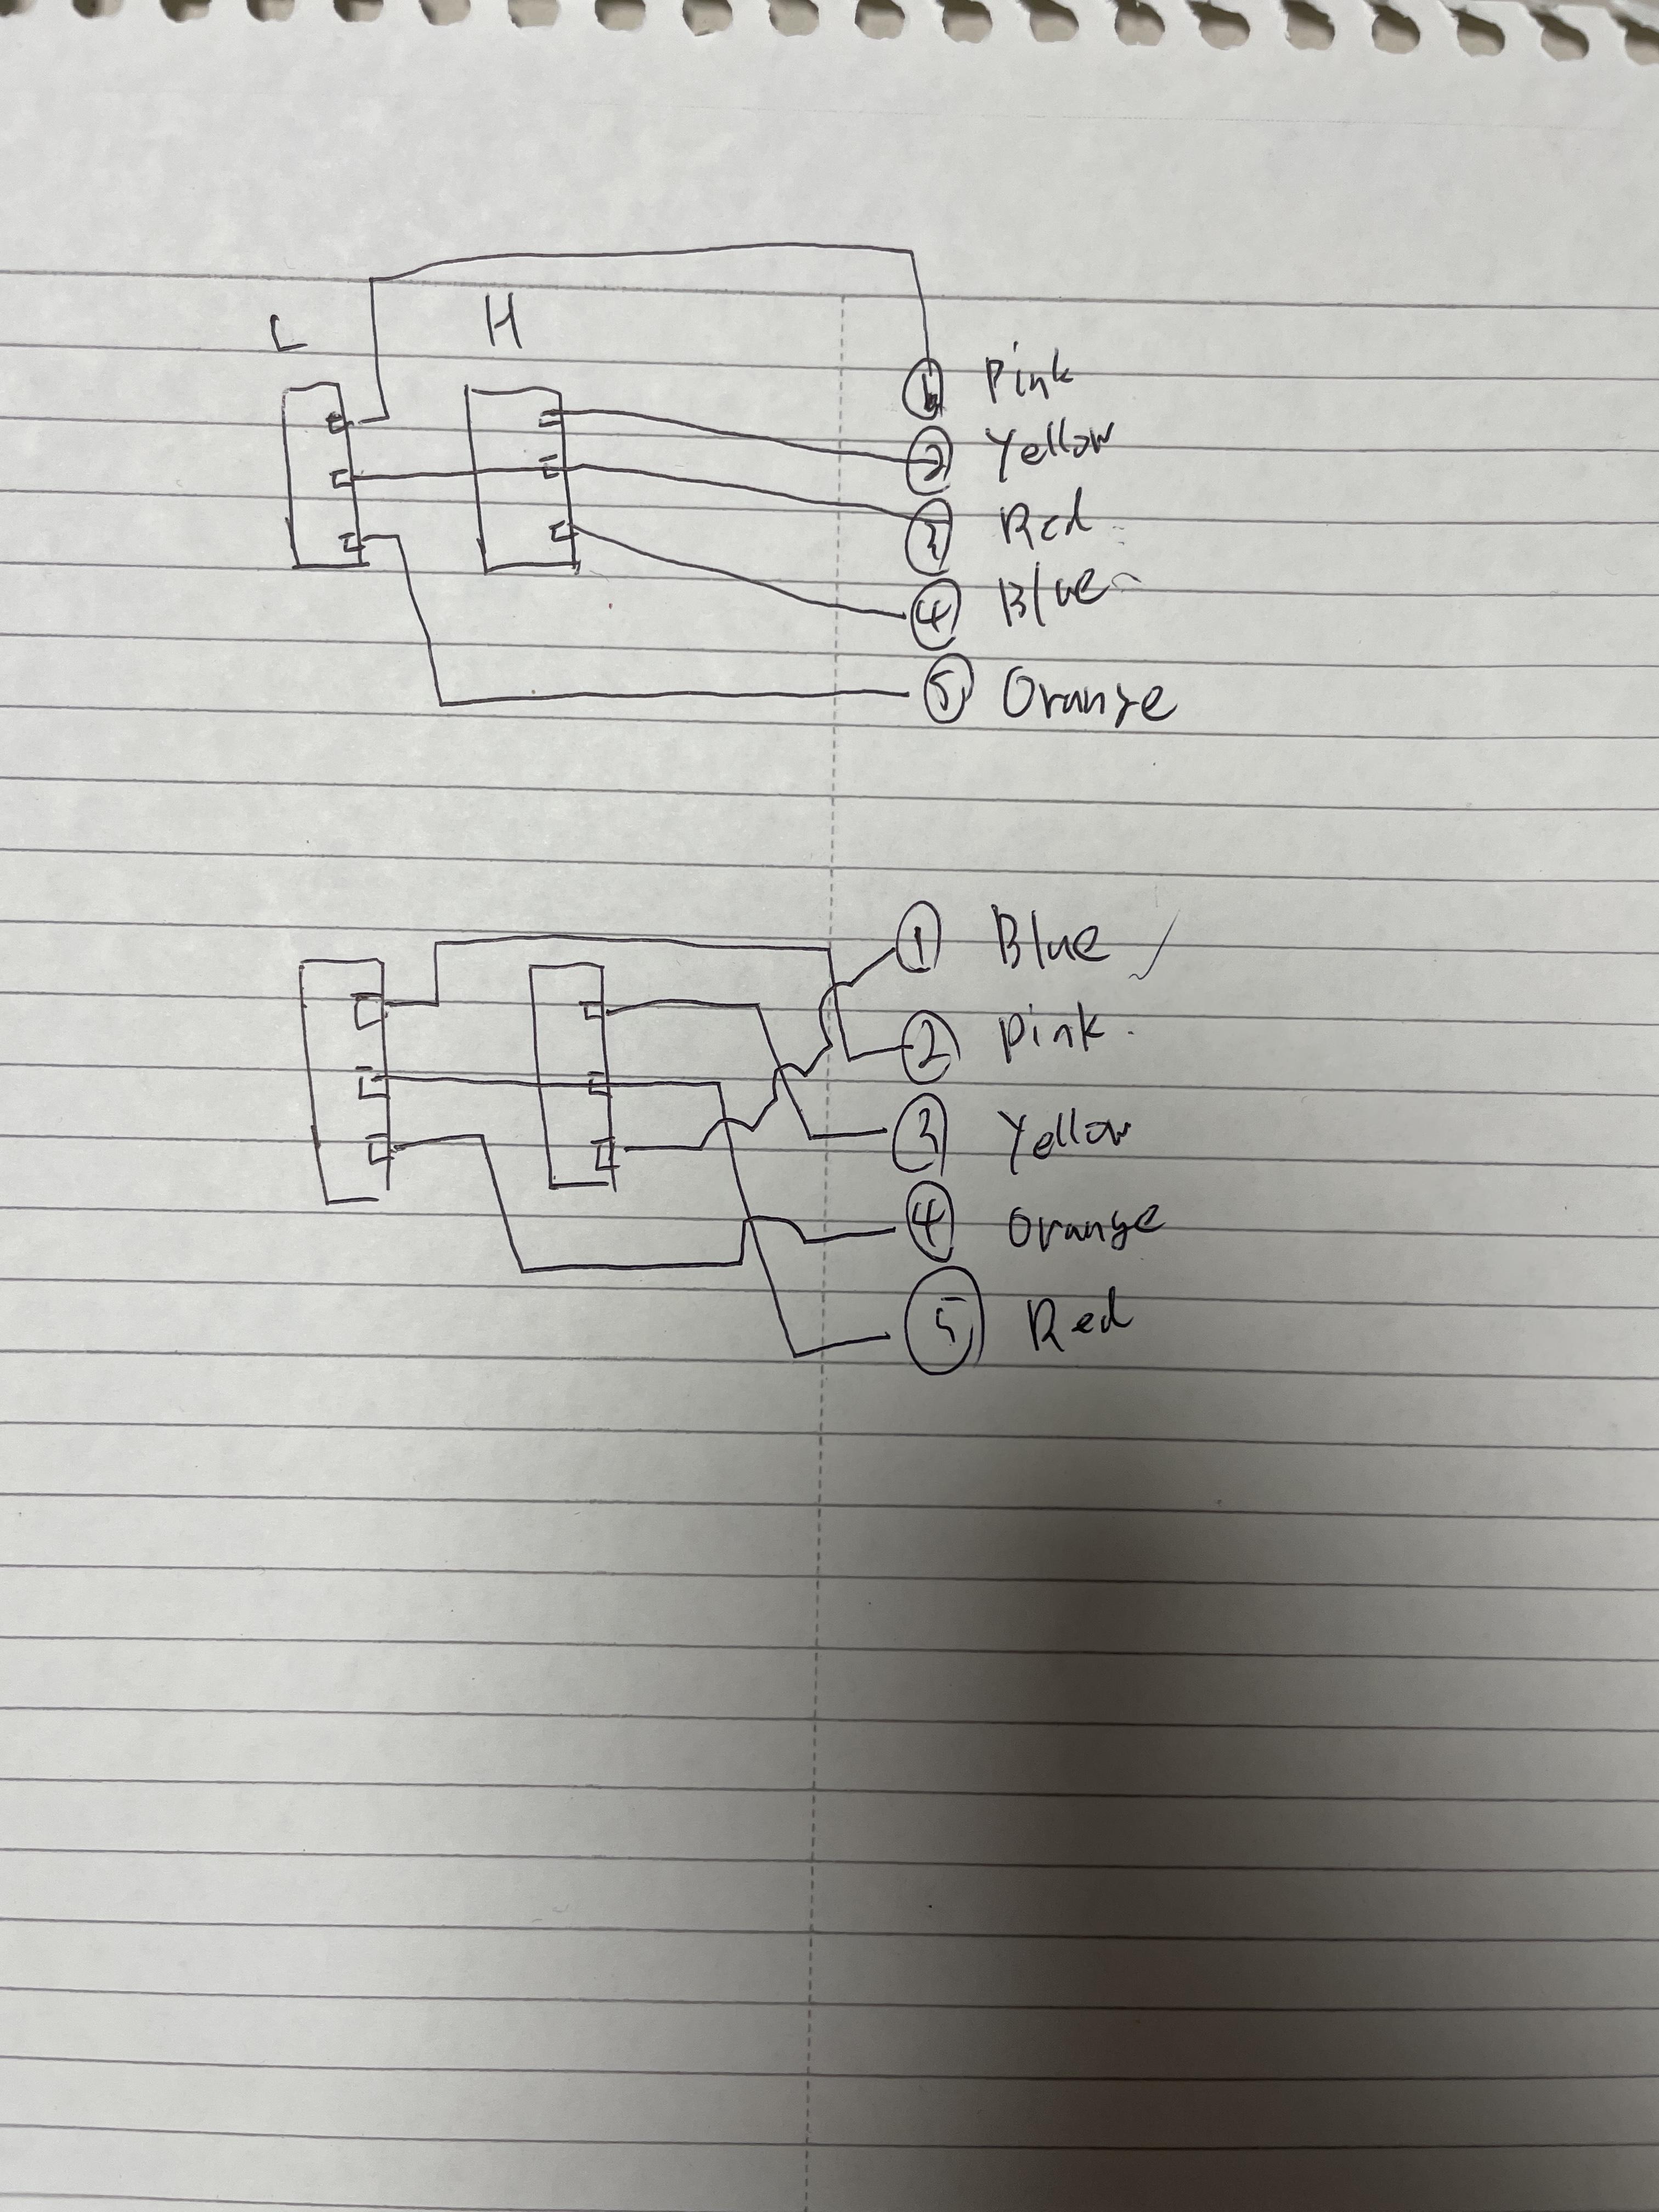 L H
① Pink
② Yellow
③ Red
④ Blue
⑤ Orange
① Blue
② Pink
③ Yellow
④ Orange
⑤ Red